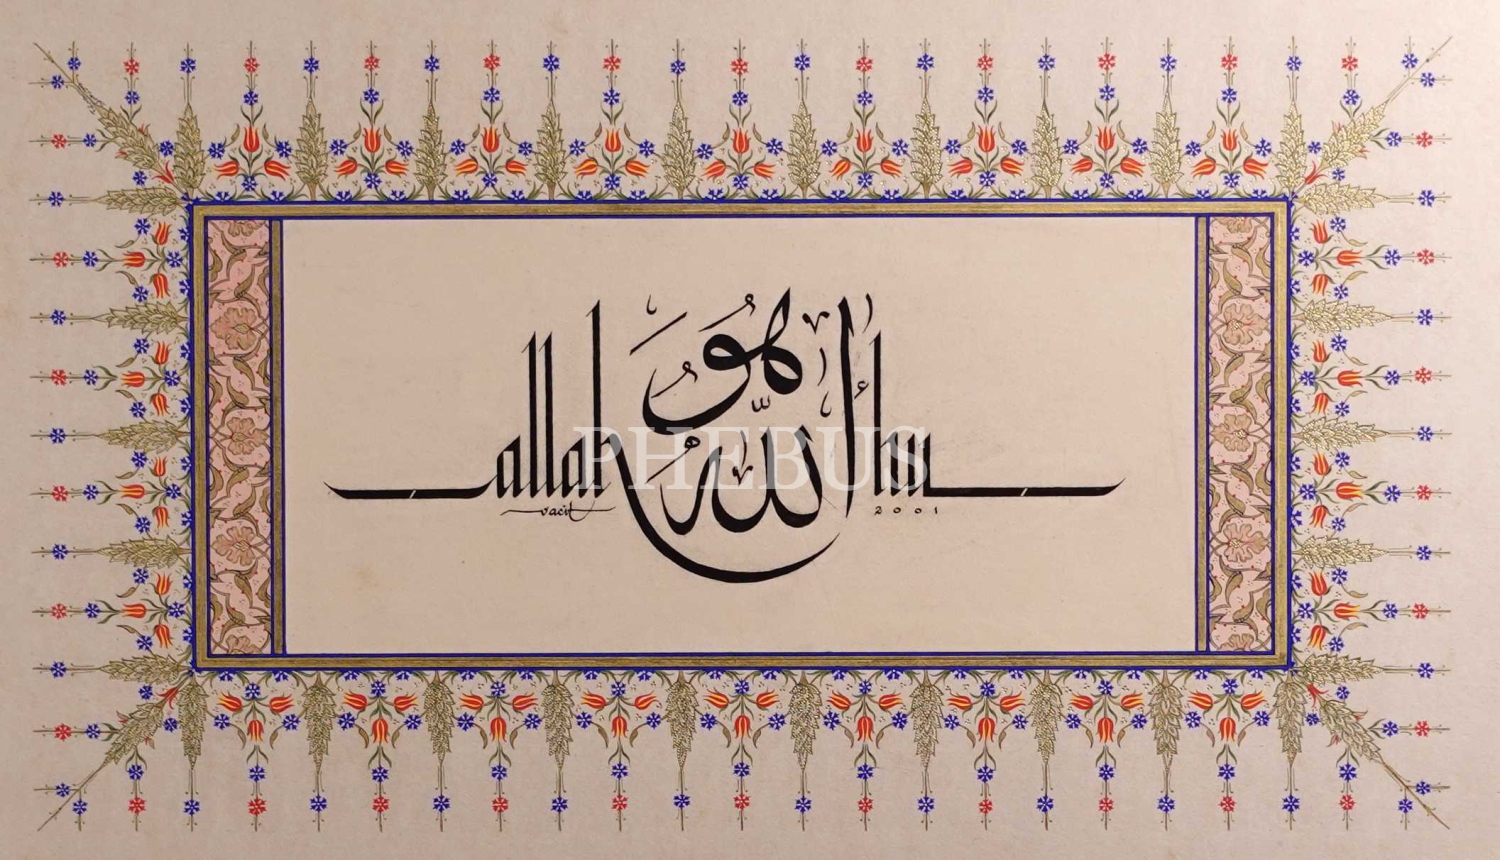 هُوَ
allah اللّٰه hu
vacit 2001
PHEBUS